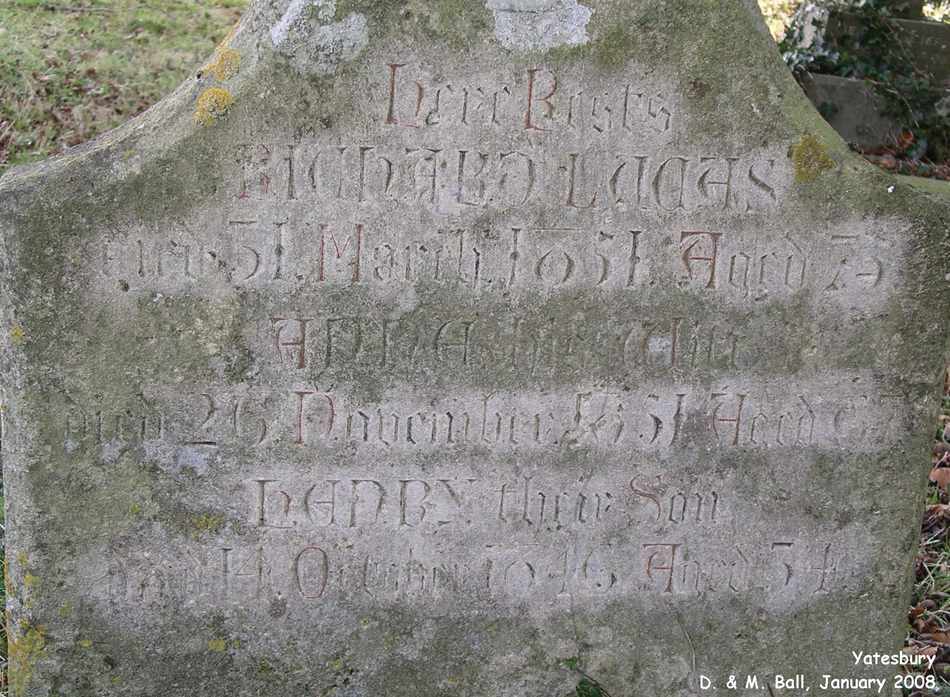 Here Rests
RICHARD LUCAS
died 31 March 1851 Aged 75
ANNA his Wife
died 26 November 1851 Aged
HENRY their Son
died 14 October 1846 Aged 34
Yatesbury
D. & M. Ball, January 2008